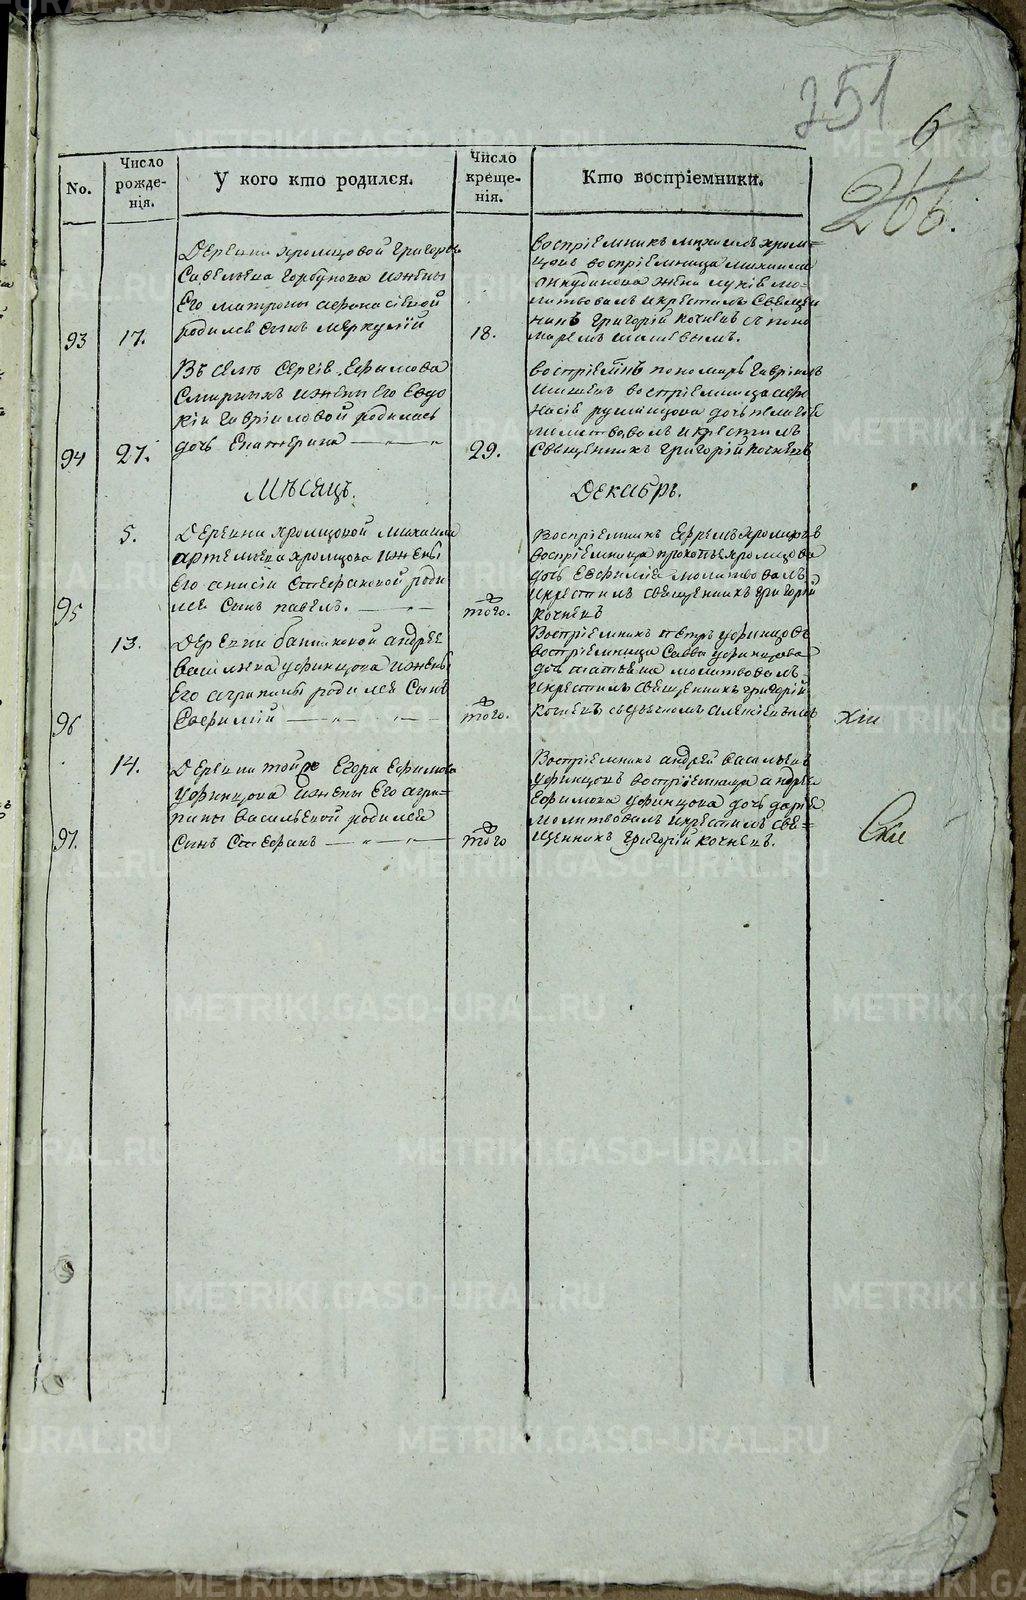 251
6
266.
No.
Число рожде-нія.
У кого кто родился.
Число креще-нія.
Кто воспріемники.
93
17.
Деревни Хромцовой Григорья
Савельева Горбунова и жены
Его Матроны Афонасіевой
родился сынъ Меркулій
18.
Воспріемникъ Михаилъ Хром=
цовъ воспріемница Михаила
жена мо=
литвовалъ и крестилъ Священ
никъ Григорій Кочневъ с поно
маремъ
94
27.
Въ селѣ Сергія Ефимова
Смирныхъ и жены его Евдо
кіи Гавріиловой родилась
дочь Екатерина
29.
пономарь Гавріилъ
воспріемница Афо
насія Румянцова дочь Пелагея
молитвовалъ и крестилъ
Священникъ Григорій Кочневъ
Мѣсяцъ.
Декабрь.
95
5.
Деревни Хромцовой Михаила
Артемьева Хромцова и жены
Его Анисіи Стефановой роди
лся сынъ Павелъ.
того.
Воспріемникъ Ефремъ Хромцовъ
воспріемница Прокопья Хромцова
дочь Евфимія молитвовалъ
и крестилъ священникъ Григорій
Кочневъ
96
13.
Деревни Андрея
Васильева Уфинцова и жены
Его Агрипины родился сынъ
того.
Воспріемникъ Петръ Уфинцовъ
воспріемница Саввы Уфинцова
дочь Татьяна молитвовалъ
и крестилъ священникъ Григорій
Кочневъ
97.
14.
Деревни той же Егора Ефимова
Уфинцова и жены Его Агри=
пины Васильевой родился
сынъ Стефанъ
того
Воспріемникъ Андрей Васильевъ
Уфинцовъ воспріемница Андрея
Ефимова Уфинцова дочь Дарія
молитвовалъ и крестилъ свя=
щенникъ Григорій Кочневъ.
METRIKI.GASO-URAL.RU